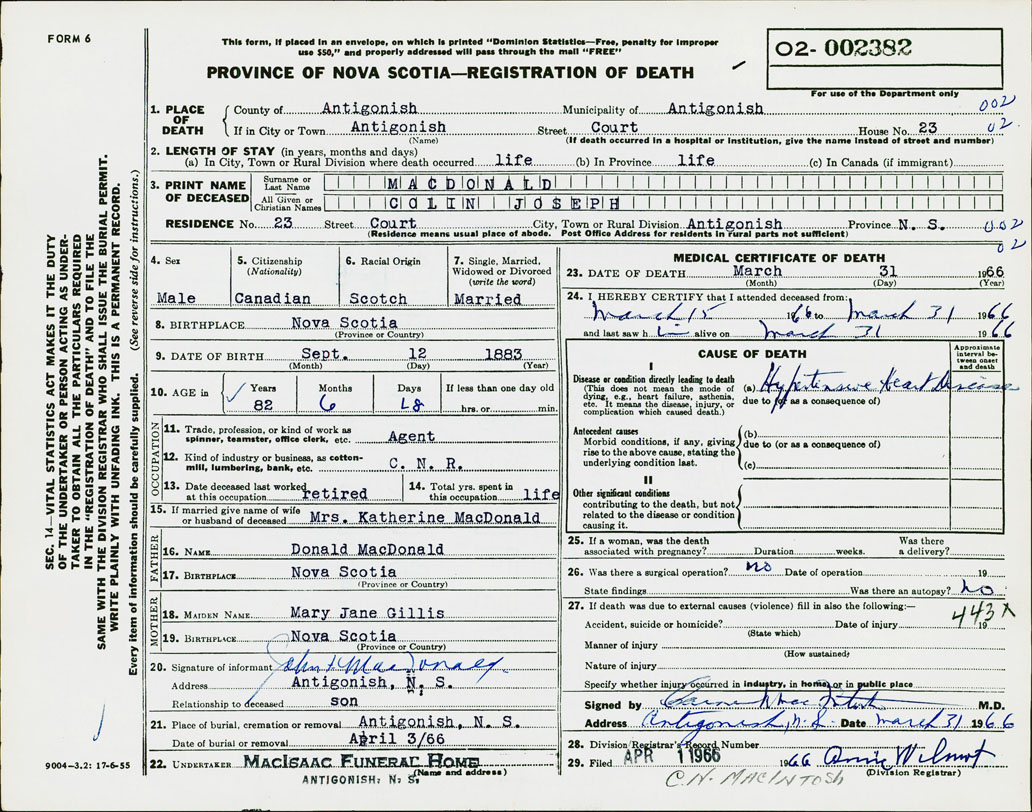 FORM 6
This form, if placed in an envelope, on which is printed "Dominion Statistics—Free, penalty for improper
use $50," and properly addressed will pass through the mail "FREE"
PROVINCE OF NOVA SCOTIA—REGISTRATION OF DEATH
02- 002382
For use of the Department only
1. PLACE OF DEATH
County of Antigonish Municipality of Antigonish 002
If in City or Town Antigonish Street Court House No. 23 02
(Name) (If death occurred in a hospital or institution, give the name instead of street and number)
2. LENGTH OF STAY (in years, months and days)
(a) In City, Town or Rural Division where death occurred life (b) In Province life (c) In Canada (if immigrant)
3. PRINT NAME OF DECEASED
Surname or Last Name MACDONALD
All Given or Christian Names COLIN JOSEPH
RESIDENCE No. 23 Street Court City, Town or Rural Division Antigonish Province N. S. 002
(Residence means usual place of abode. Post Office Address for residents in rural parts not sufficient) 02
4. Sex
Male
5. Citizenship
(Nationality)
Canadian
6. Racial Origin
Scotch
7. Single, Married,
Widowed or Divorced
(write the word)
Married
8. BIRTHPLACE Nova Scotia
(Province or Country)
9. DATE OF BIRTH Sept. 12 1883
(Month) (Day) (Year)
10. AGE in
Years Months Days If less than one day old
82 6 18 hrs. or min.
OCCUPATION
11. Trade, profession, or kind of work as
spinner, teamster, office clerk, etc. Agent
12. Kind of industry or business, as cotton-
mill, lumbering, bank, etc. C. N. R.
13. Date deceased last worked
at this occupation retired
14. Total yrs. spent in
this occupation life
15. If married give name of wife
or husband of deceased Mrs. Katherine MacDonald
FATHER
16. NAME Donald MacDonald
17. BIRTHPLACE Nova Scotia
(Province or Country)
MOTHER
18. MAIDEN NAME Mary Jane Gillis
19. BIRTHPLACE Nova Scotia
(Province or Country)
20. Signature of informant John MacDonald
Address Antigonish, N. S.
Relationship to deceased son
21. Place of burial, cremation or removal Antigonish, N. S.
Date of burial or removal April 3/66
22. UNDERTAKER MACISAAC FUNERAL HOME
(Name and address)
ANTIGONISH, N. S.
MEDICAL CERTIFICATE OF DEATH
23. DATE OF DEATH March 31 1966
(Month) (Day) (Year)
24. I HEREBY CERTIFY that I attended deceased from:
March 15 1966 to March 31 1966
and last saw him alive on March 31 1966
CAUSE OF DEATH
Approximate
interval be-
tween onset
and death
I
Disease or condition directly leading to death
(This does not mean the mode of
dying, e.g., heart failure, asthenia,
etc. It means the disease, injury, or
complication which caused death.)
(a) Hypertensive Heart Disease
due to (or as a consequence of)
Antecedent causes
Morbid conditions, if any, giving
rise to the above cause, stating the
underlying condition last.
(b)
due to (or as a consequence of)
(c)
II
Other significant conditions
contributing to the death, but not
related to the disease or condition
causing it.
25. If a woman, was the death
associated with pregnancy? Duration weeks. Was there
a delivery?
26. Was there a surgical operation? no Date of operation 19
State findings Was there an autopsy? no
27. If death was due to external causes (violence) fill in also the following:— 443X
Accident, suicide or homicide? Date of injury 19
(State which)
Manner of injury
(How sustained)
Nature of injury
Specify whether injury occurred in industry, in home, or in public place
Signed by M.D.
Address Antigonish, N.S. Date March 31 1966
28. Division Registrar's Record Number
29. Filed APR 1 1966 1966 Annie Wilmot
(Division Registrar)
C.N. MACINTOSH
SEC. 14—VITAL STATISTICS ACT MAKES IT THE DUTY
OF THE UNDERTAKER OR PERSON ACTING AS UNDER-
TAKER TO OBTAIN ALL THE PARTICULARS REQUIRED
IN THE "REGISTRATION OF DEATH" AND TO FILE THE
SAME WITH THE DIVISION REGISTRAR WHO SHALL ISSUE THE BURIAL PERMIT.
WRITE PLAINLY WITH UNFADING INK. THIS IS A PERMANENT RECORD.
Every item of information should be carefully supplied. (See reverse side for instructions.)
9004-3.2: 17-6-55